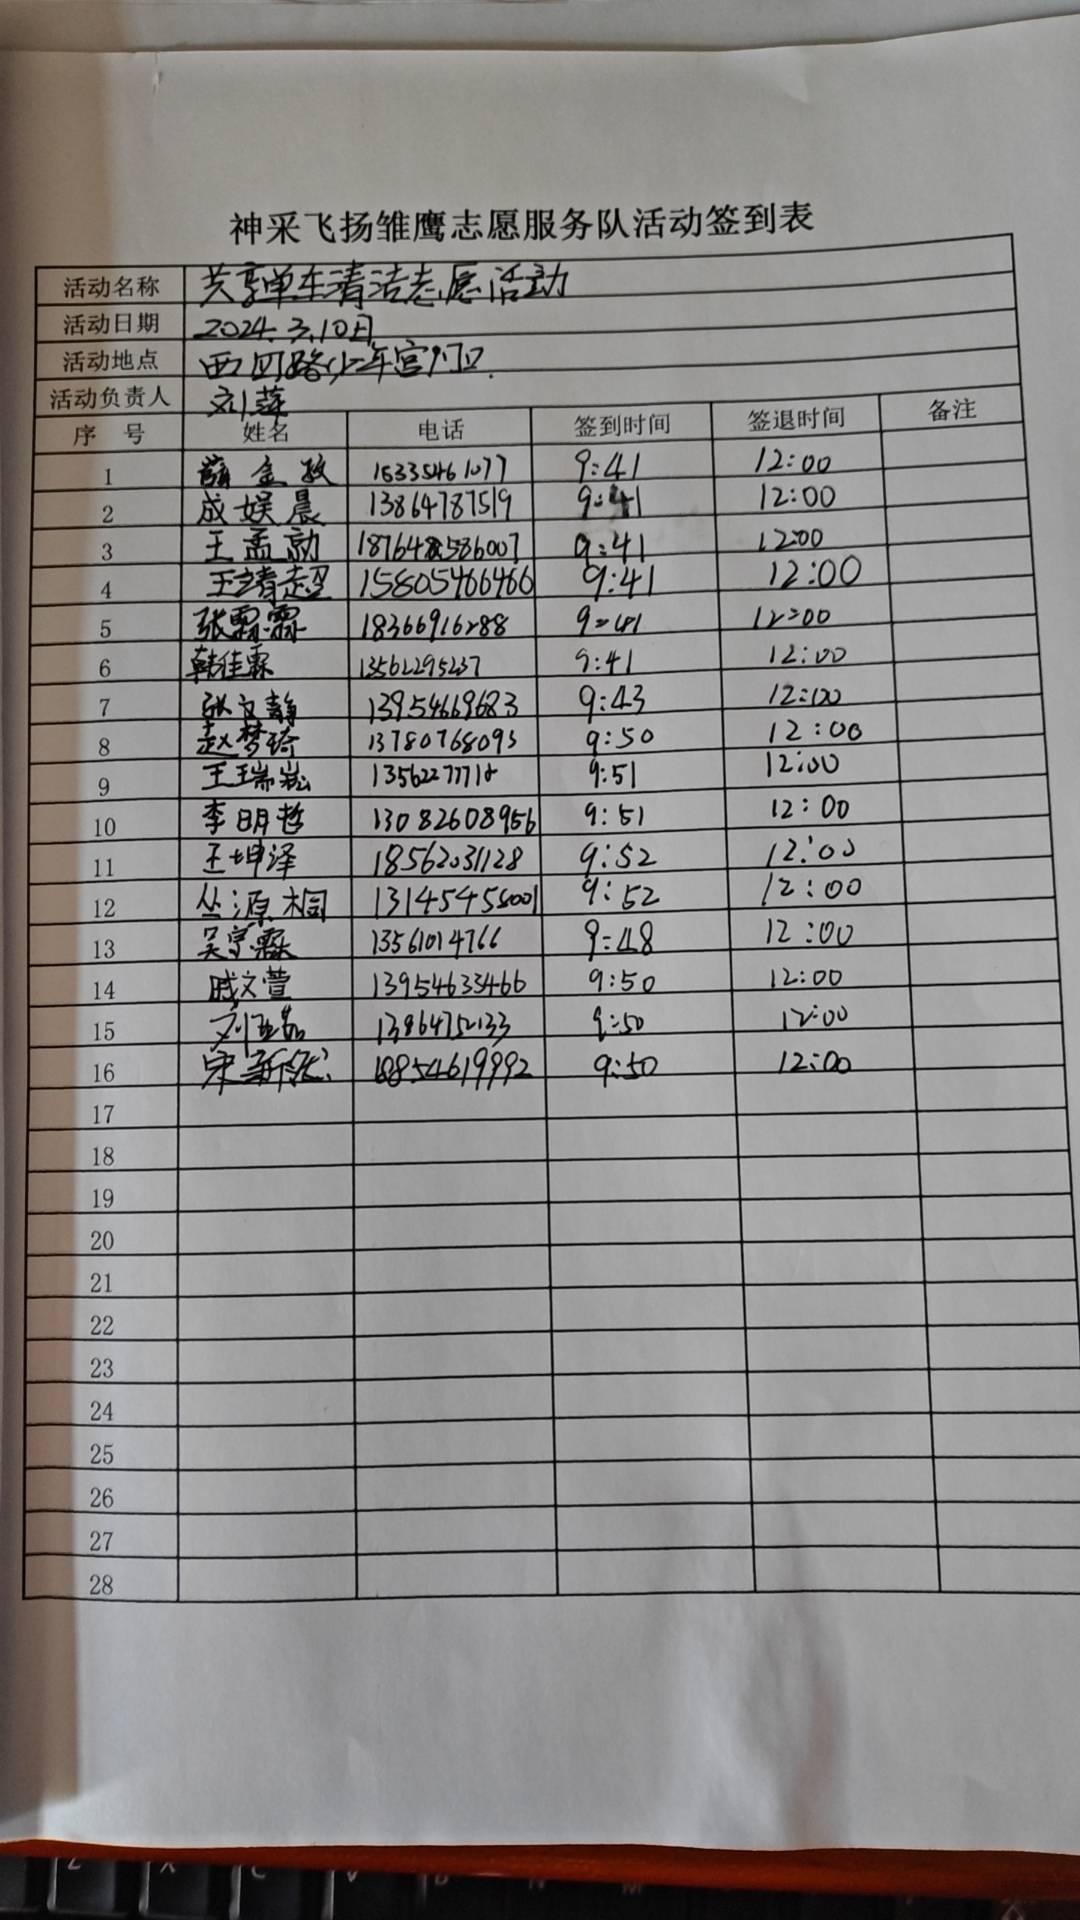 神采飞扬雏鹰志愿服务队活动签到表
活动名称 共享单车清洁志愿活动
活动日期 2024.3.10日
活动地点 西四路少年宫门口.
活动负责人 刘萍
序 号 姓名 电话 签到时间 签退时间 备注
1 薛金 15335461077 9:41 12:00
2 成娱晨 13864787519 9:41 12:00
3 王孟勋 9:41 12:00
4 王靖超 15805466466 9:41 12:00
5 张霖霖 18366916288 9:41 12:00
6 韩佳霖 13562295237 9:41 12:00
7 张文静 13954669683 9:43 12:00
8 赵梦琦 13780768093 9:50 12:00
9 王瑞崧 9:51 12:00
10 李明哲 13082608956 9:51 12:00
11 王坤泽 18562031128 9:52 12:00
12 丛源桐 13145456001 9:52 12:00
13 吴宇霖 13561014766 9:48 12:00
14 戚文萱 13954633466 9:50 12:00
15 刘 13864752133 9:50 12:00
16 宋新 18854619992 9:50 12:00
17
18
19
20
21
22
23
24
25
26
27
28
Z X C V B N M